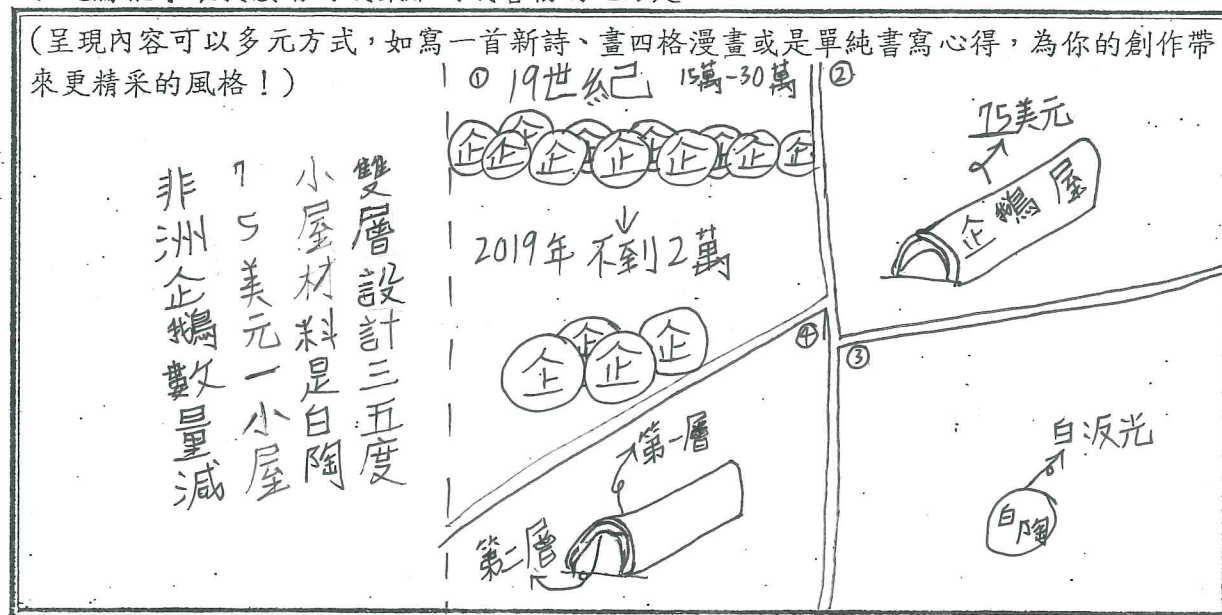 (呈現內容可以多元方式，如寫一首新詩、畫四格漫畫或是單純書寫心得，為你的創作帶
來更精采的風格！)
非洲企鵝數量減
75美元一小屋
小屋材料是白陶
雙層設計三五度
① 19世紀 15萬-30萬
企企企企企企企企企
2019年 不到2萬
企企企企
②
75美元
企鵝屋
③
白反光
白陶
④
第一層
第二層